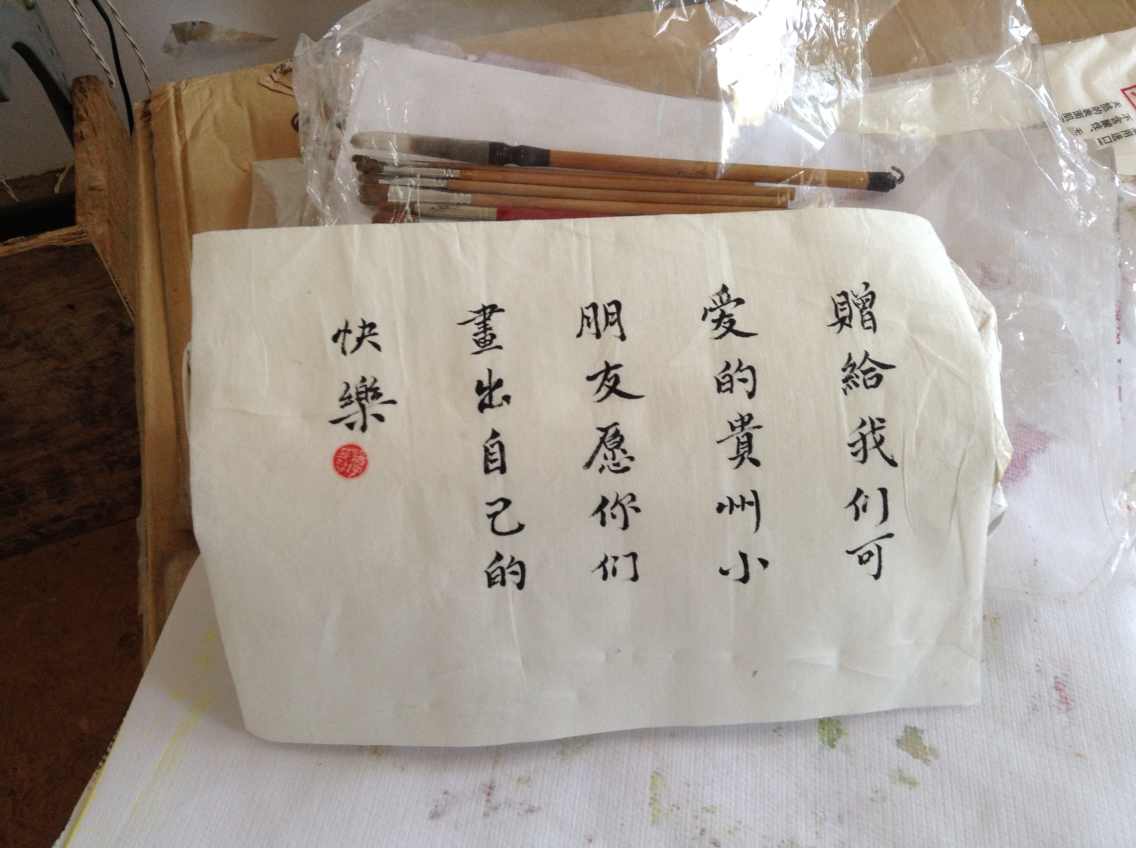 贈給我们可
爱的貴州小
朋友愿你们
畫出自己的
快樂